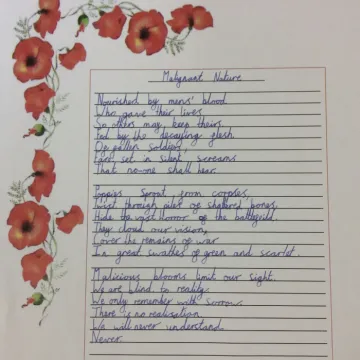 Malignant Nature
Nourished by mens' blood
Who gave their lives
So others may keep theirs
Fed by the decaying flesh
Of fallen soldiers,
Lips set in silent screams
That no-one shall hear.
Poppies sprout from corpses,
Twist through piles of shattered bones,
Hide the vast horror of the battlefield.
They cloud our vision,
Cover the remains of war
In great swathes of green and scarlet.
Malicious blooms limit our sight.
We are blind to reality.
We only remember with sorrow.
There is no realisation.
We will never understand.
Never.